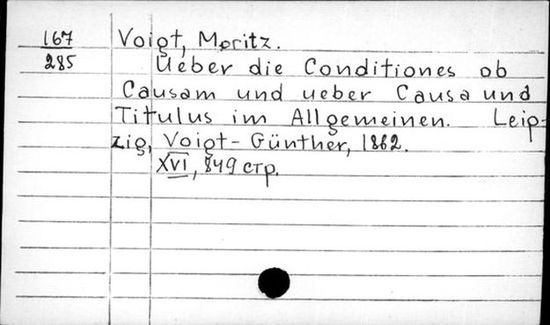 167 Voigt, Moritz.
285 Ueber die Conditiones ob
Causam und ueber Causa und
Titulus im Allgemeinen. Leip-
zig, Voigt-Günther, 1862.
XVI, 849 стр.